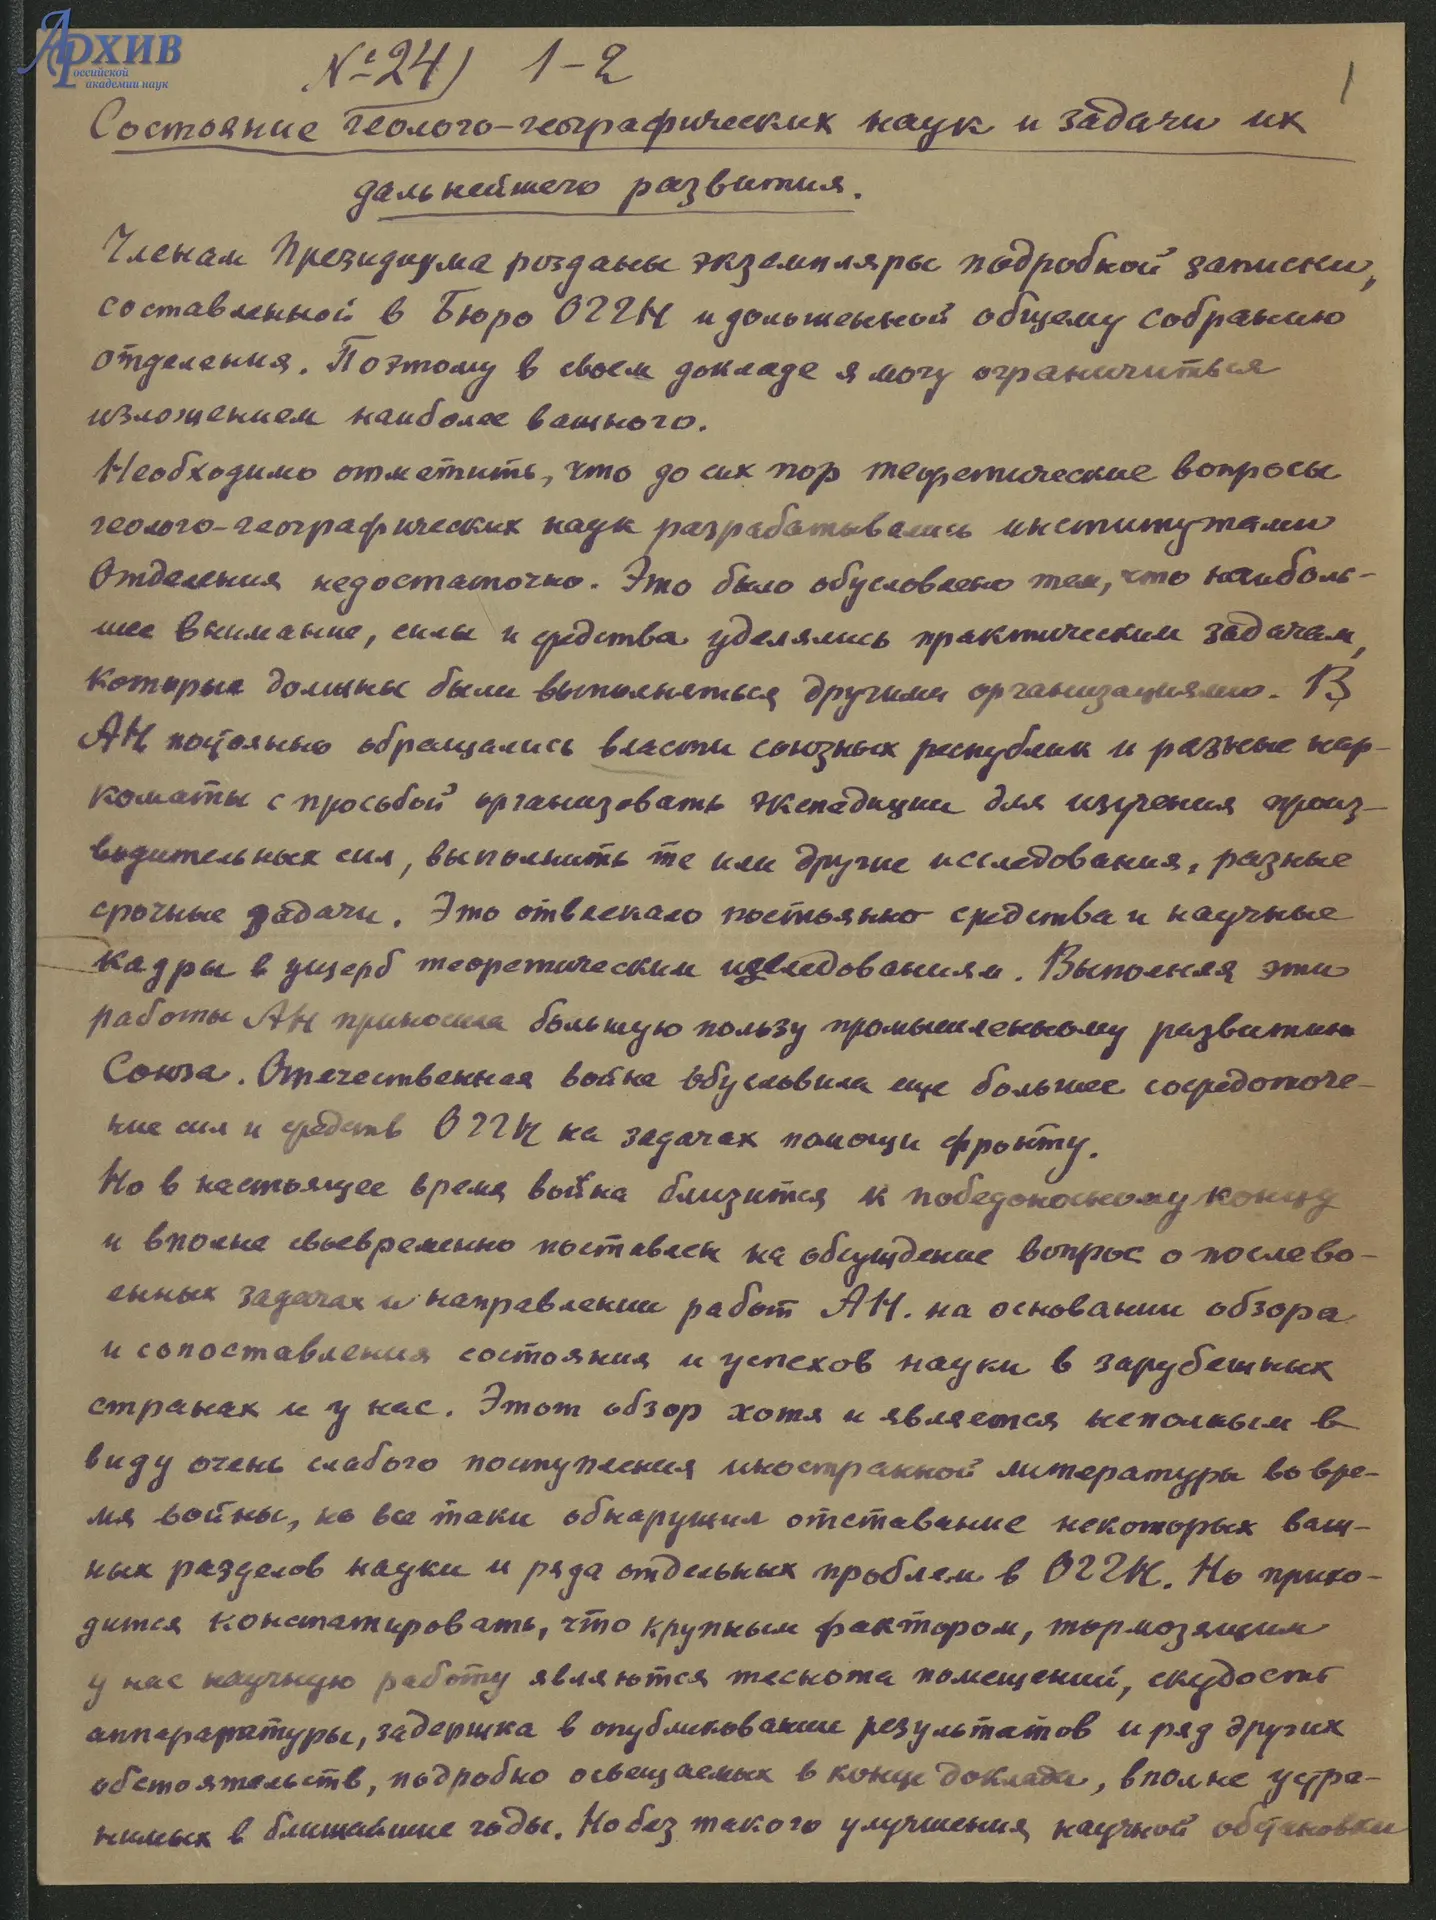 Архив
Российской
академии наук
№ 24) 1-2
1
Состояние геолого-географических наук и задачи их
дальнейшего развития.
Членам Президиума розданы экземпляры подробной записки,
составленной в Бюро ОГГН и доложенной общему собранию
отделения. Поэтому в своем докладе я могу ограничиться
изложением наиболее важного.
Необходимо отметить, что до сих пор теоретические вопросы
геолого-географических наук разрабатывались институтами
Отделения недостаточно. Это было обусловлено тем, что наиболь-
шее внимание, силы и средства уделялись практическим задачам,
которые должны были выполняться другими организациями. В
АН постоянно обращались власти союзных республик и разные нар-
коматы с просьбой организовать экспедиции для изучения произ-
водительных сил, выполнить те или другие исследования, разные
срочные задачи. Это отвлекало постоянно средства и научные
кадры в ущерб теоретическим исследованиям. Выполняя эти
работы АН приносила большую пользу промышленному развитию
Союза. Отечественная война обусловила еще большее сосредоточе-
ние сил и средств ОГГН на задачах помощи фронту.
Но в настоящее время война близится к победоносному концу
и вполне своевременно поставлен на обсуждение вопрос о послево-
енных задачах и направлении работ АН. на основании обзора
и сопоставления состояния и успехов науки в зарубежных
странах и у нас. Этот обзор хотя и является неполным в
виду очень слабого поступления иностранной литературы во вре-
мя войны, но все таки обнаружил отставание некоторых важ-
ных разделов науки и ряда отдельных проблем в ОГГН. Но прихо-
дится констатировать, что крупным фактором, тормозящим
у нас научную работу являются теснота помещений, скудость
аппараратуры, задержка в опубликовании результатов и ряд других
обстоятельств, подробно освещаемых в конце доклада, вполне устра-
нимых в ближайшие годы. Но без такого улучшения научной обстановки